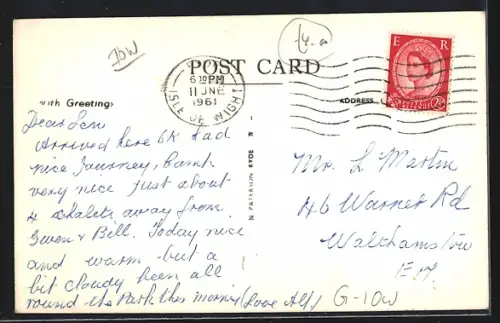 IOW
POST CARD
6 30 PM
11 JNE
1961
ISLE OF WIGHT
E R
With Greetings
ADDRESS
Dear Len
Arrived here OK had
nice journey, Camp
very nice just about
4 chalets away from
Gwen & Bill. Today nice
and warm but a
bit cloudy been all
round the Park this morning (Love Alf)
N PATERSON RYDE
Mr. L Martin
46 Warner Rd
Walthamstow
E 17.
G-IOW